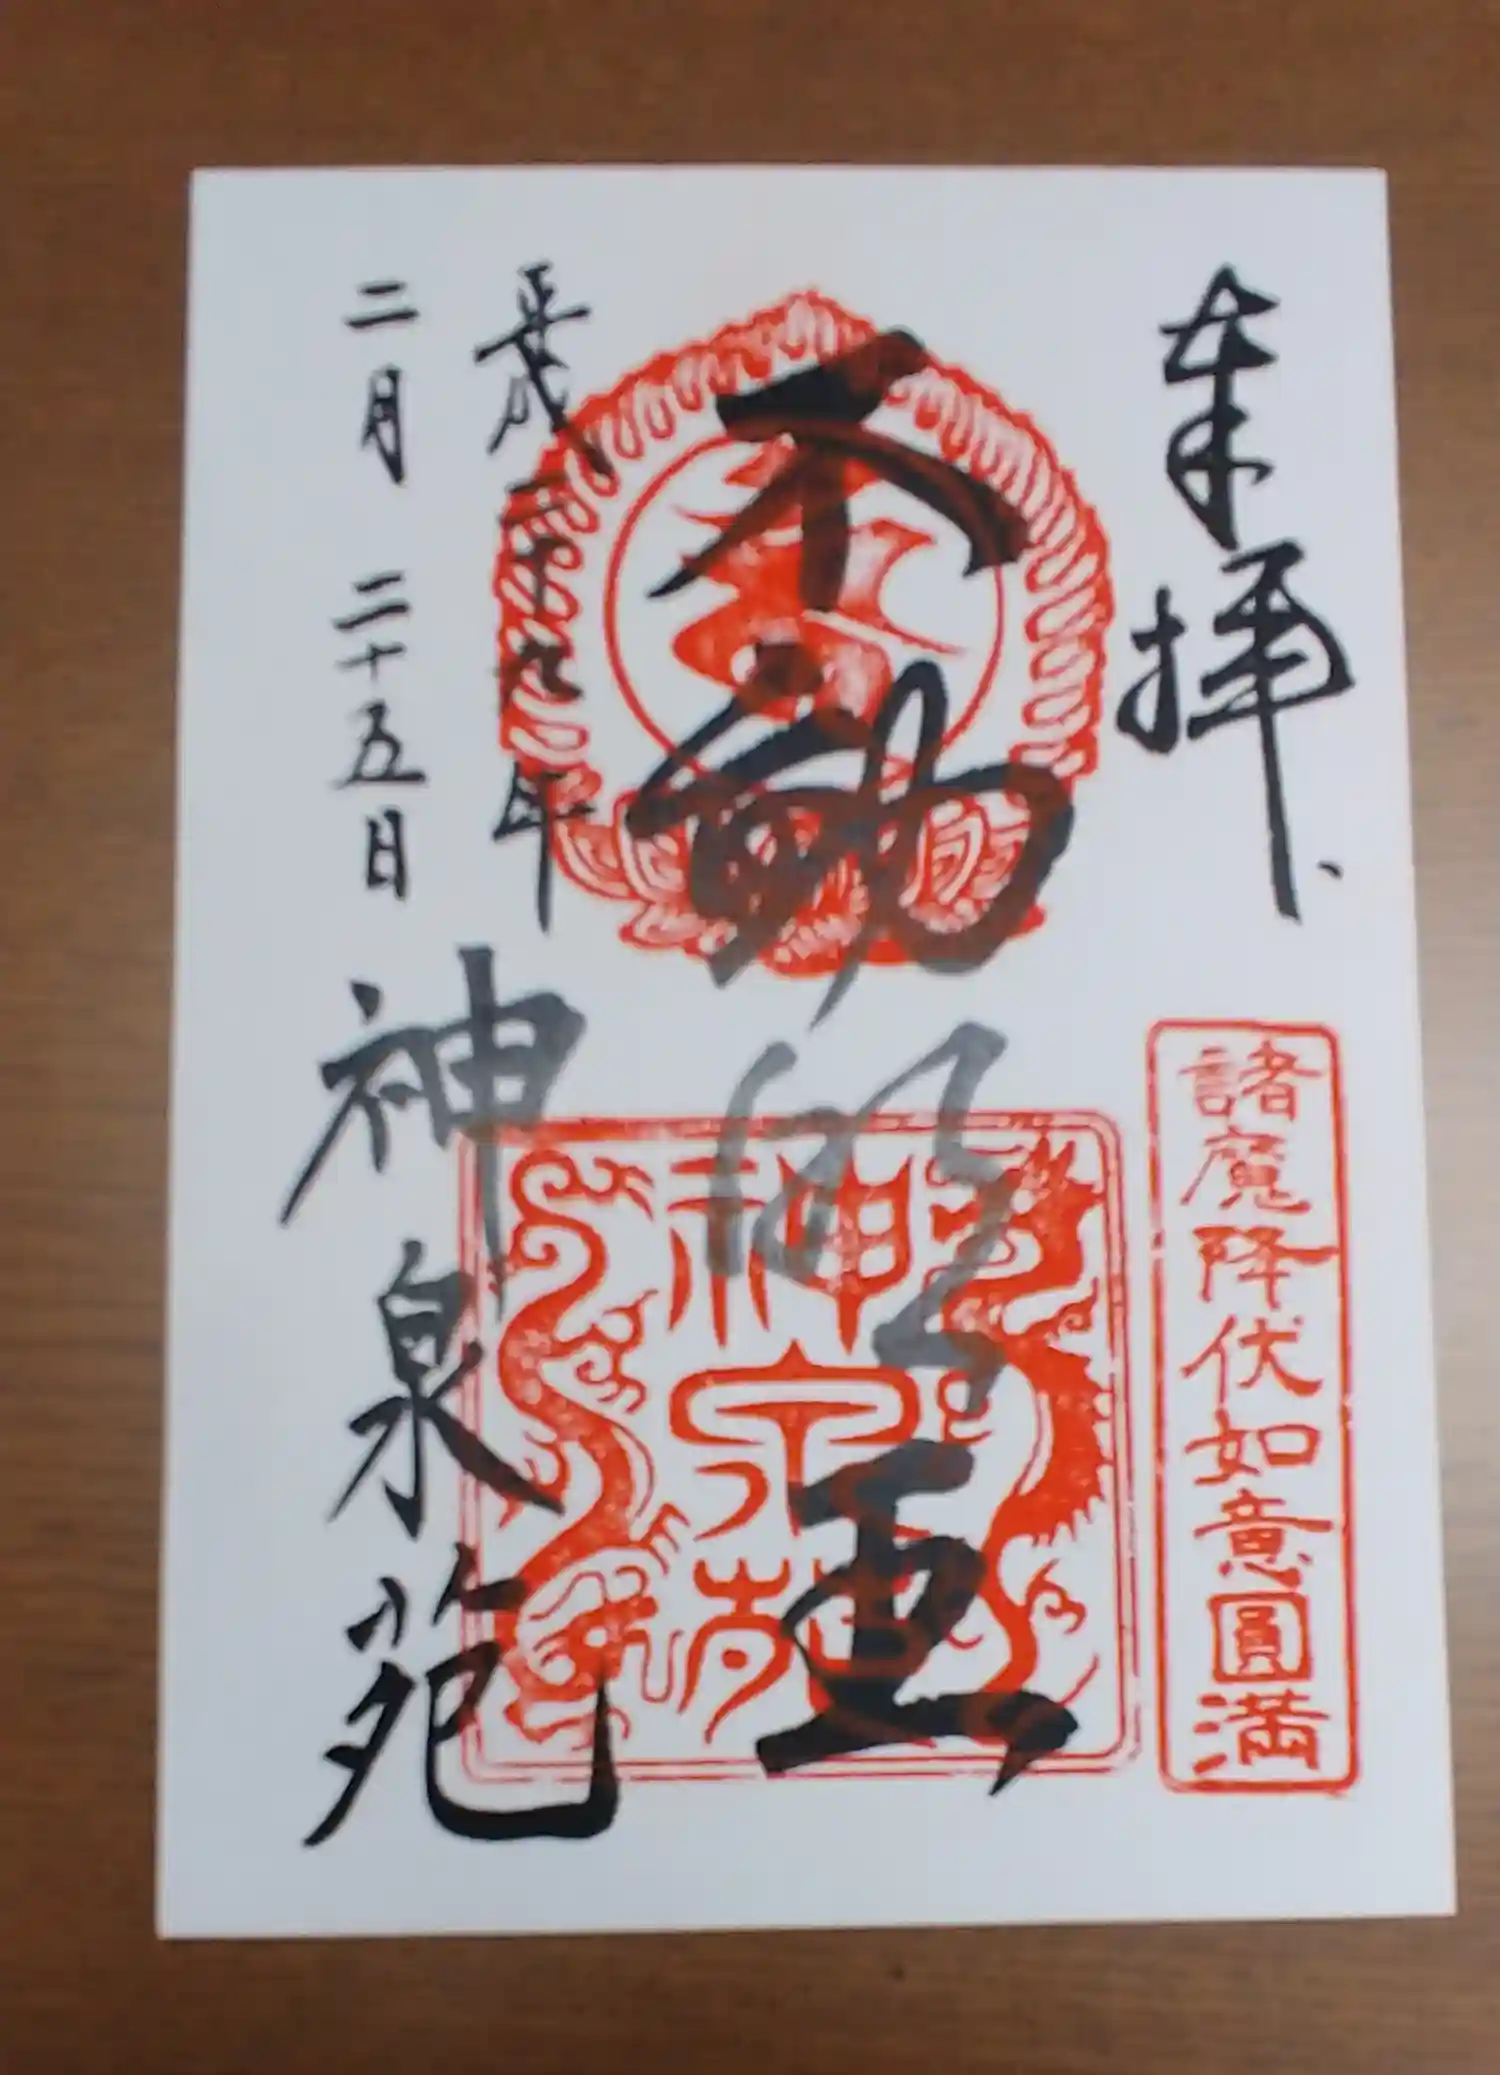 奉拝
諸魔降伏如意圓滿
不動明王
神泉苑
平成二十九年
二月 二十五日
神泉苑